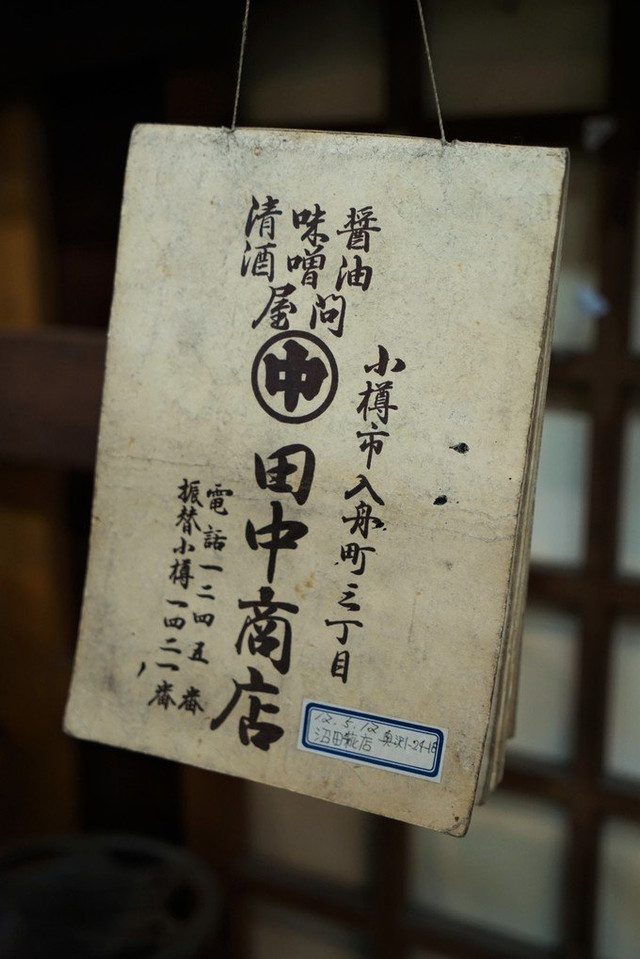 醤油
味噌
清酒
問屋
小樽市入舟町三丁目
中
田中商店
電話一二四五番
振替小樽一四二一番
12.5.12
沼田 店 奥沢1-24-18